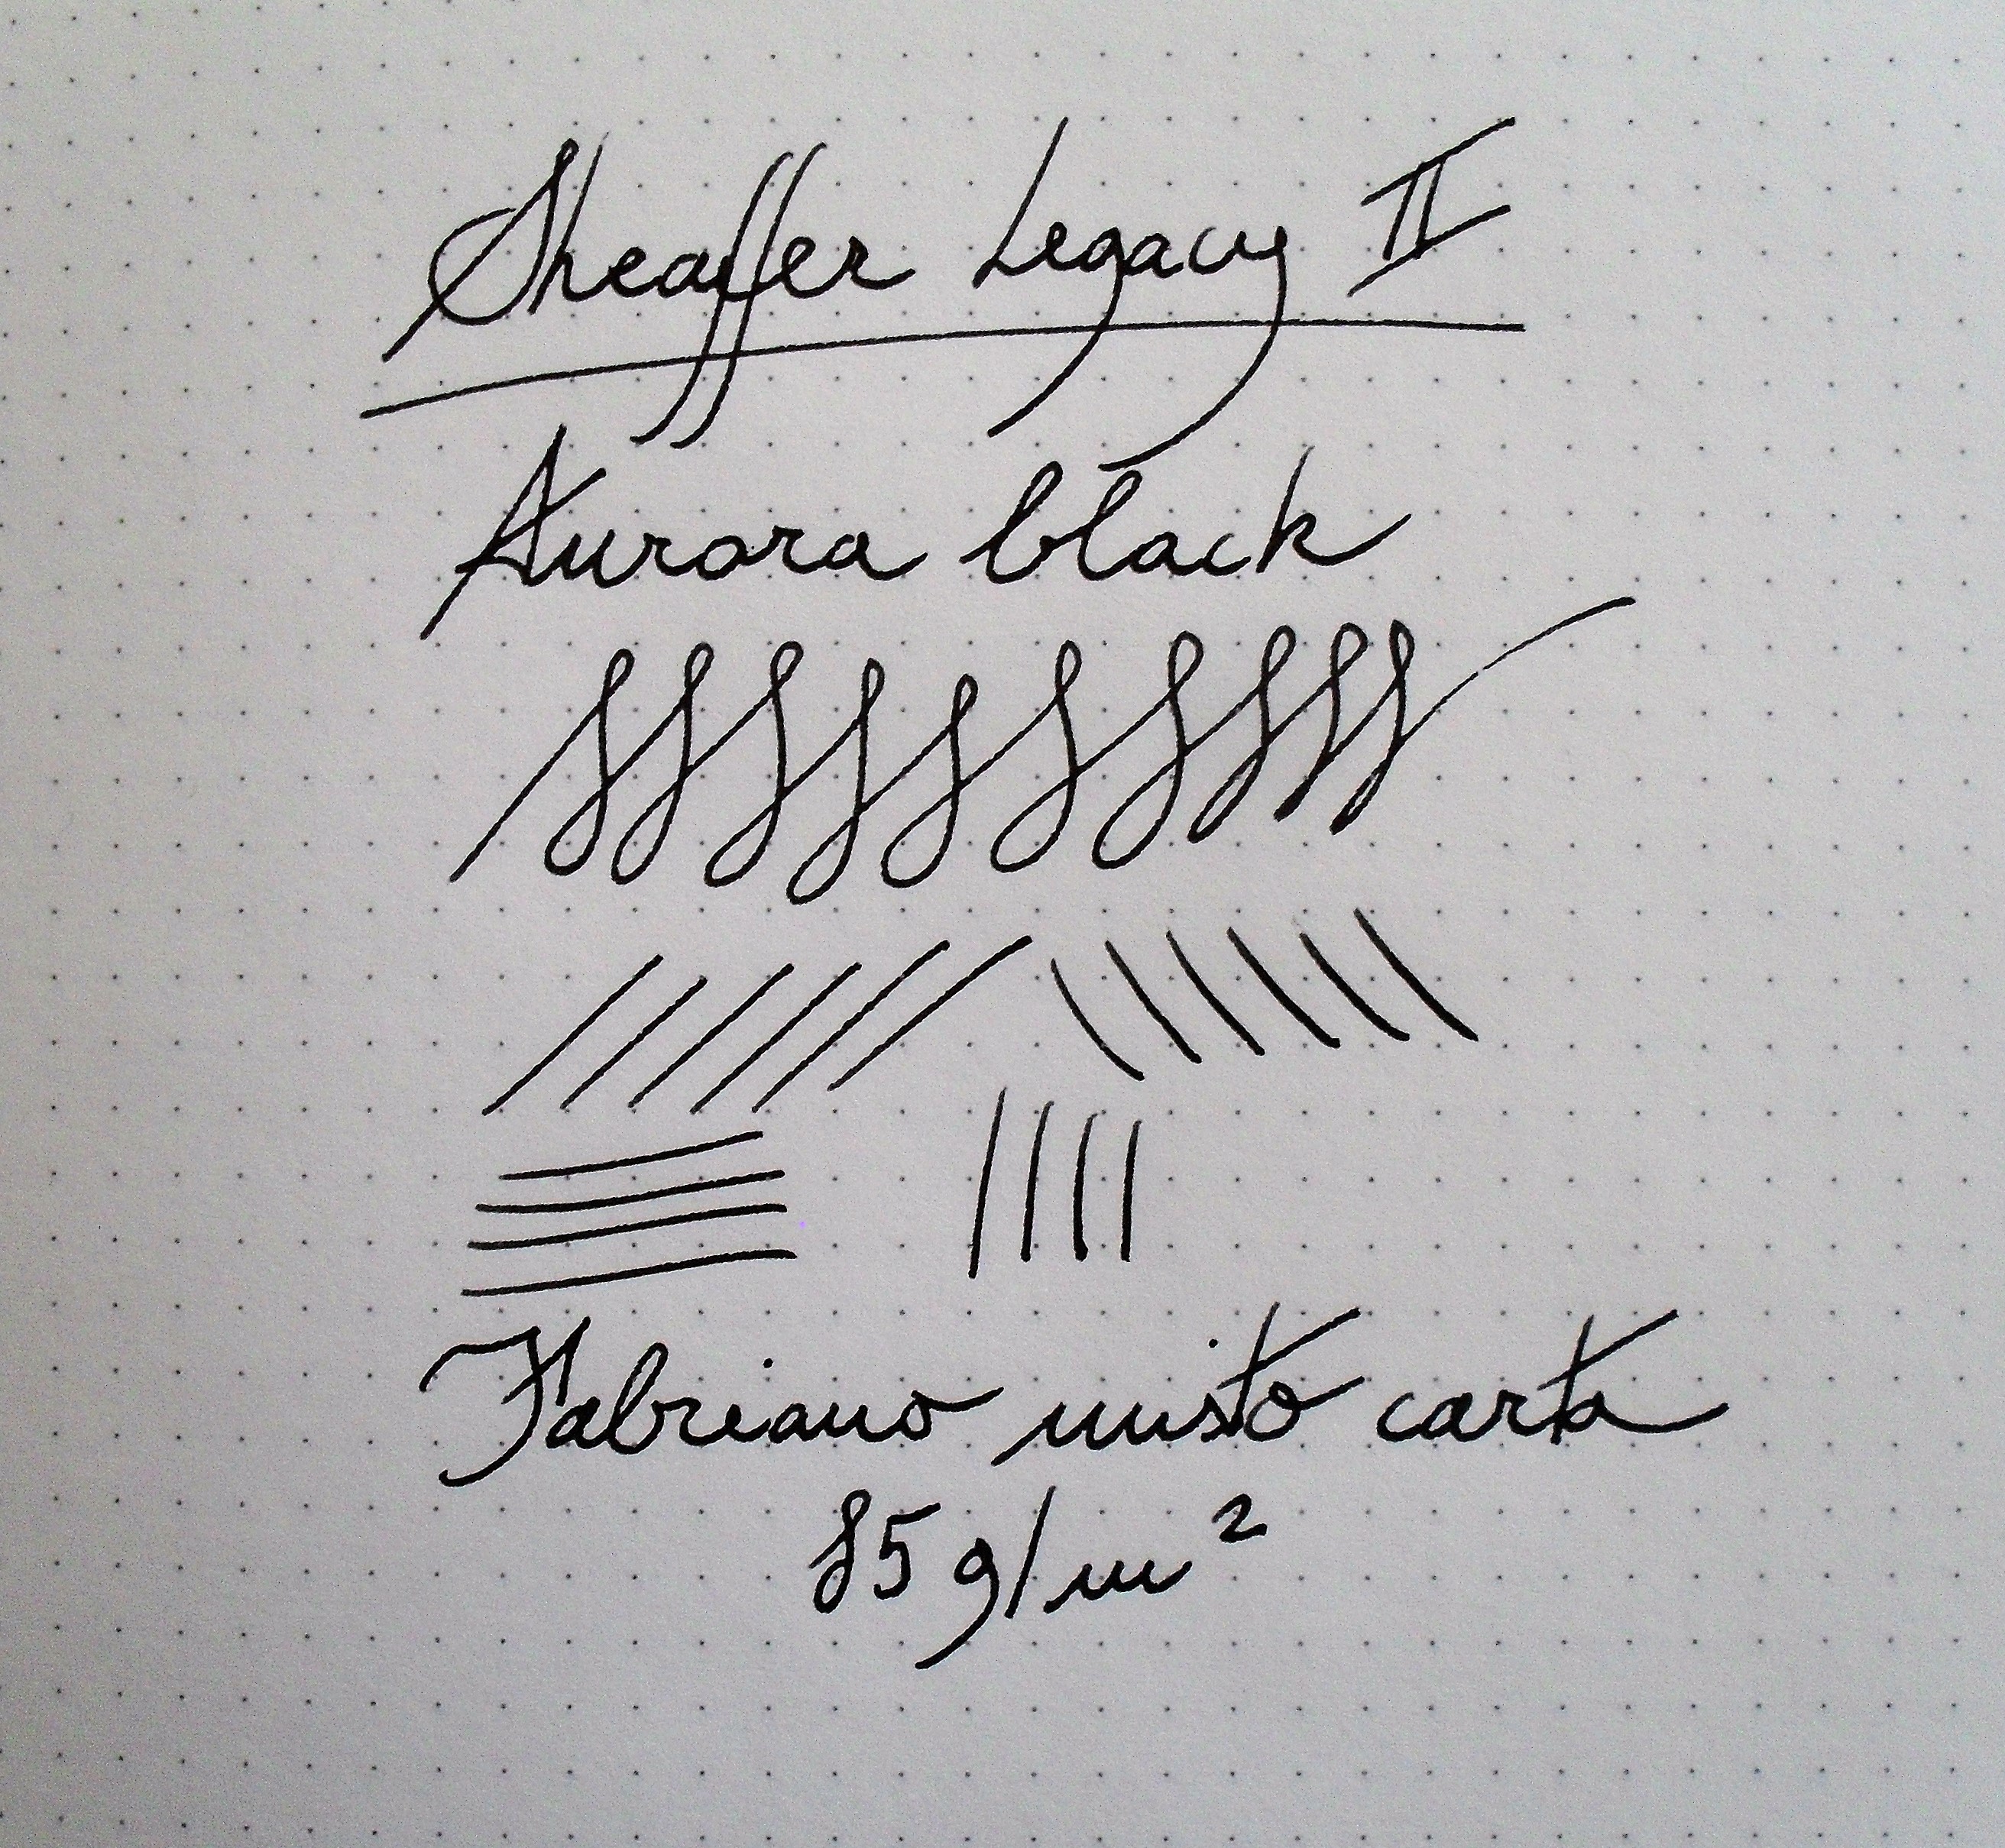 Sheaffer Legacy II
Aurora black
Fabriano misto carta
85 g/m²